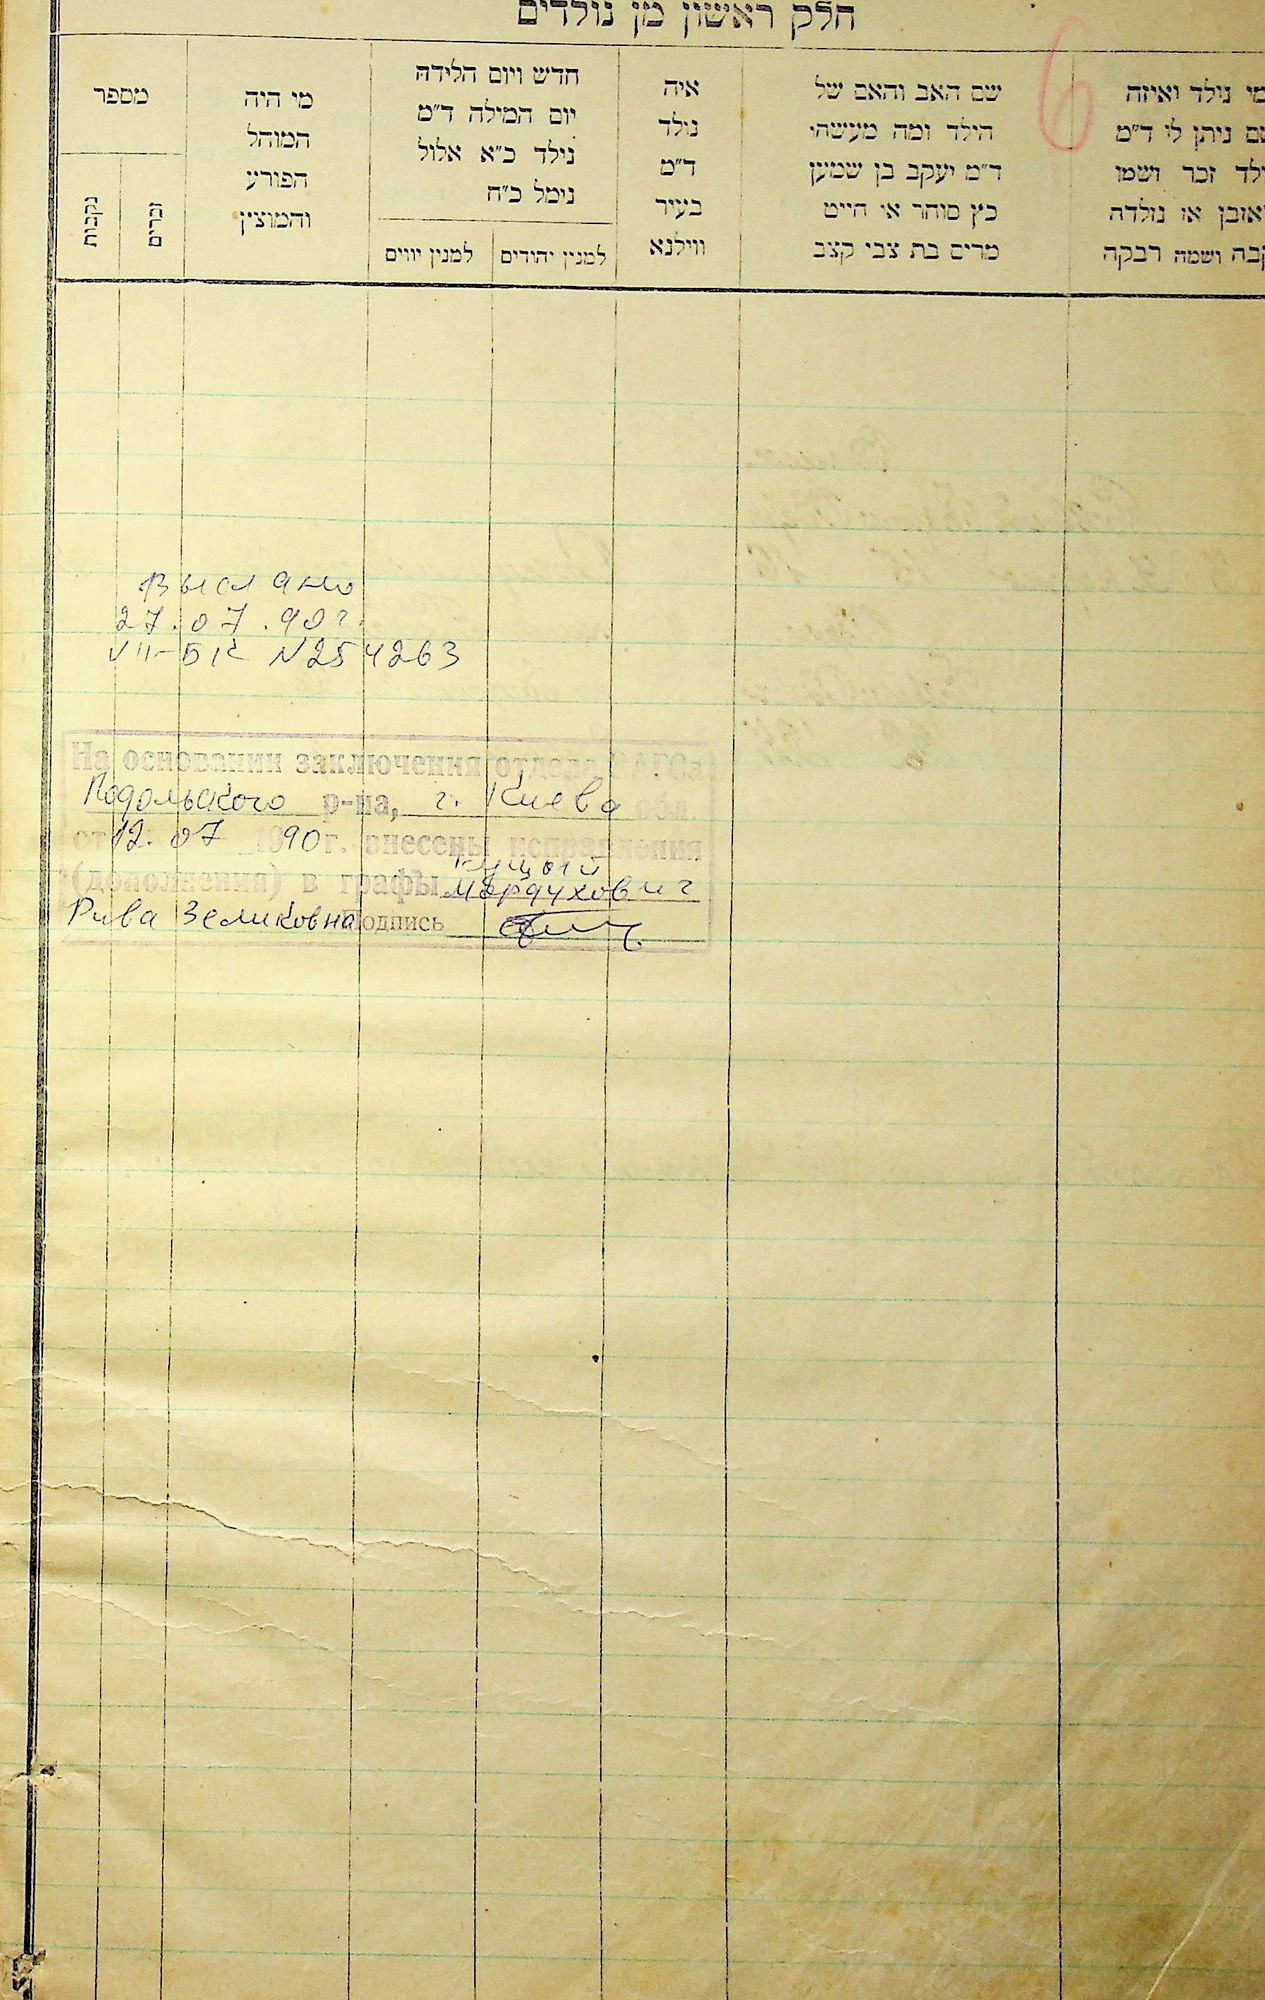 חלק ראשון מן נולדים
6
מי נולד ואיזה
שם ניתן לו ד״מ
ילד זכר ושמו
ראובן או נולדה
נקבה ושמה רבקה
שם האב והאם של
הילד ומה מעשהו
ד״מ יעקב בן שמעון
כץ סוחר או חייט
מרים בת צבי קצב
איה
נולד
ד״מ
בעיר
ווילנא
חדש ויום הלידה
יום המילה ד״מ
נילד כ״א אלול
נימל כ״ח
למנין יהודים
למנין יווים
מי היה
המוהל
הפורע
והמוצץ
מספר
זכרים
נקבות
Выслано
27.07.90г.
VII-БК N254263
На основании заключения отдела ЗАГСа
Подольского р-на, г. Киева обл.
от 12.07 1990г. внесены исправления
Куцый
(дополнения) в графы Мордухович
Рива Зеликовна Подпись